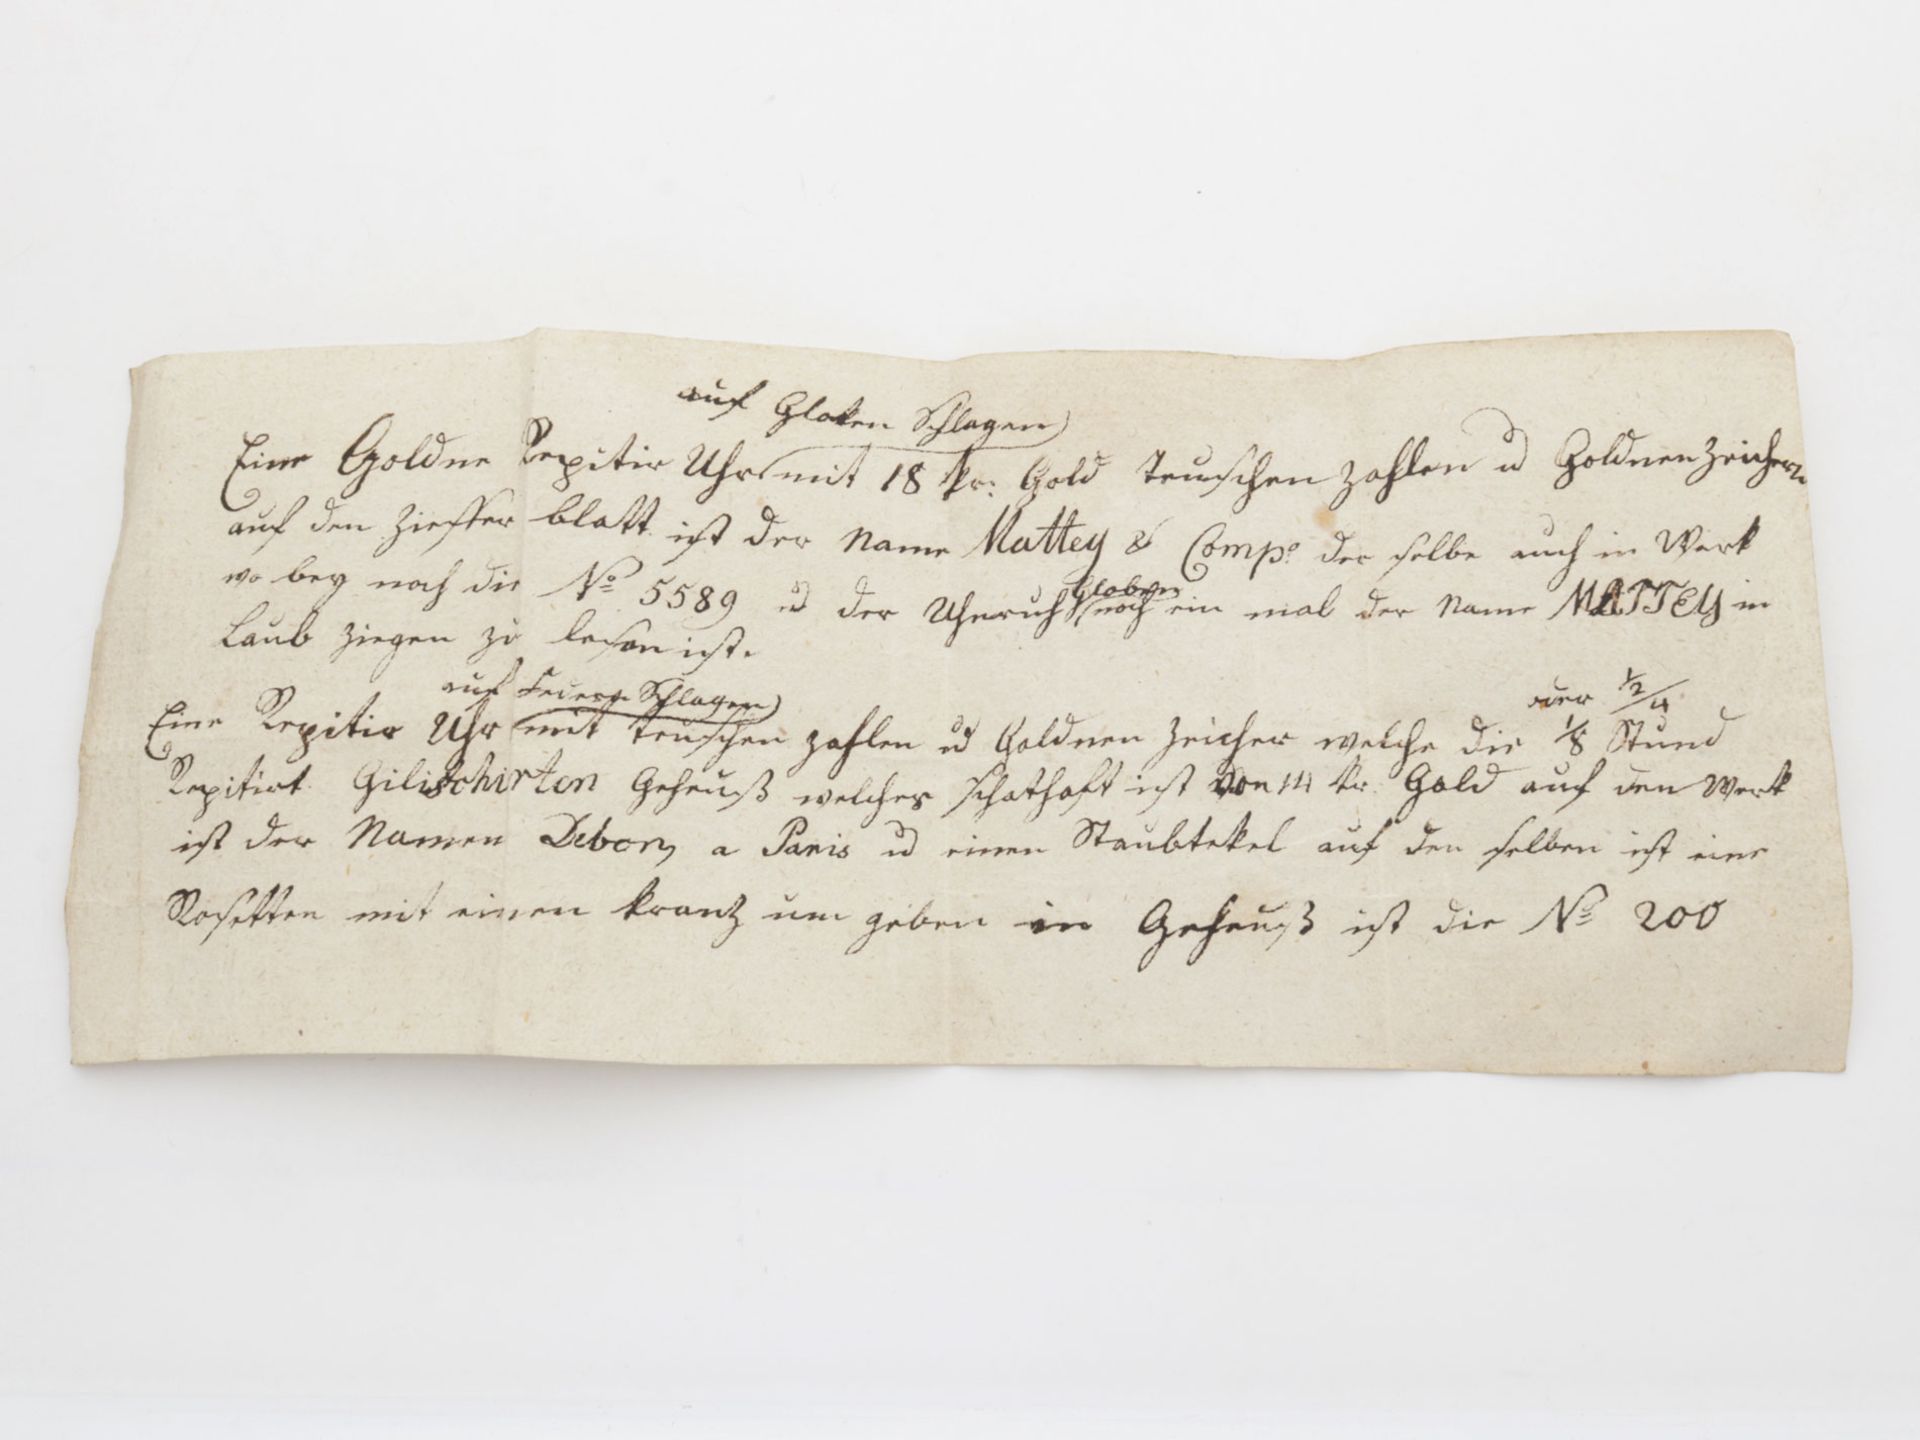 auf Gloken Schlagen
Eine Goldne Repitir Uhr mit 18 kr: Gold teuschen zahlen u Goldnen Zeichern
auf den Zieffer blatt ist der Name Mattey & Comp: der selbe auch in Werk
Globen
wo bey noch die No 5589 u der Uhnruh noch ein mal der Name MATTEY in
Laub ziegen zu lesen ist.
auf Federn Schlagen
oder 1/2/4
Eine Repitir Uhr mit teuschen zahlen u Goldnen Zeicher welche die 1/8 Stund
Repitirt Gilischirten Geheuß welches schathaft ist von 14 kr. Gold auf den Werk
ist der Namen Debon a Paris u einen Staubtekel auf den selben ist eine
Rosetten mit einen kranz um geben in Geheuß ist die No 200